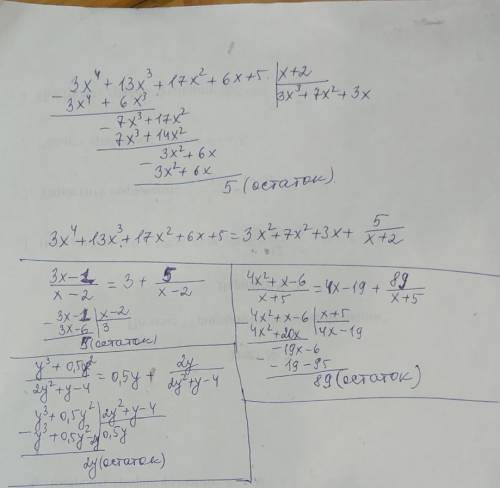 - 3x⁴ + 13x³ + 17x² + 6x + 5 | x + 2
3x⁴ + 6x³ | 3x³ + 7x² + 3x
- 7x³ + 17x²
7x³ + 14x²
- 3x² + 6x
3x² + 6x
5 (остаток)
3x⁴ + 13x³ + 17x² + 6x + 5 = 3x² + 7x² + 3x + 5/(x+2)
(3x - 1)/(x - 2) = 3 + 5/(x - 2)
- 3x - 1 | x - 2
3x - 6 | 3
5 (остаток)
(y³ + 0,5y²)/(2y² + y - 4) = 0,5y + 2y/(2y² + y - 4)
- y³ + 0,5y² | 2y² + y - 4
y³ + 0,5y² - 2y | 0,5y
2y (остаток)
(4x² + x - 6)/(x + 5) = 4x - 19 + 89/(x + 5)
- 4x² + x - 6 | x + 5
4x² + 20x | 4x - 19
- 19x - 6
- 19 - 95
89 (остаток)